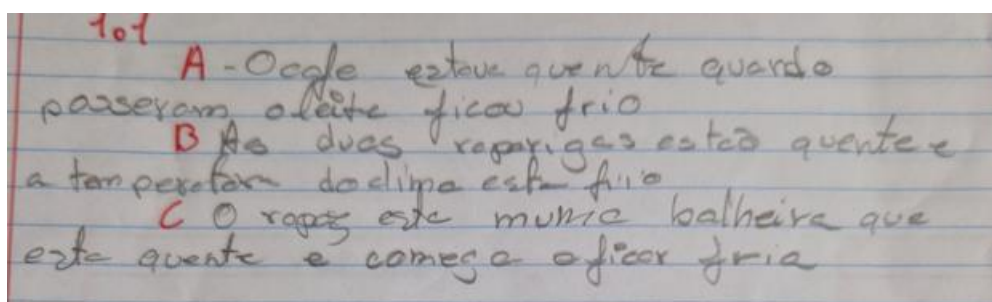 1.1
A - O cafe estave quente quando
passeram o leite ficou frio
B As duas raparigas estão quente e
a temperatura do clima esta frio
C O rapaz este numa balheira que
esta quente e começa a ficar fria